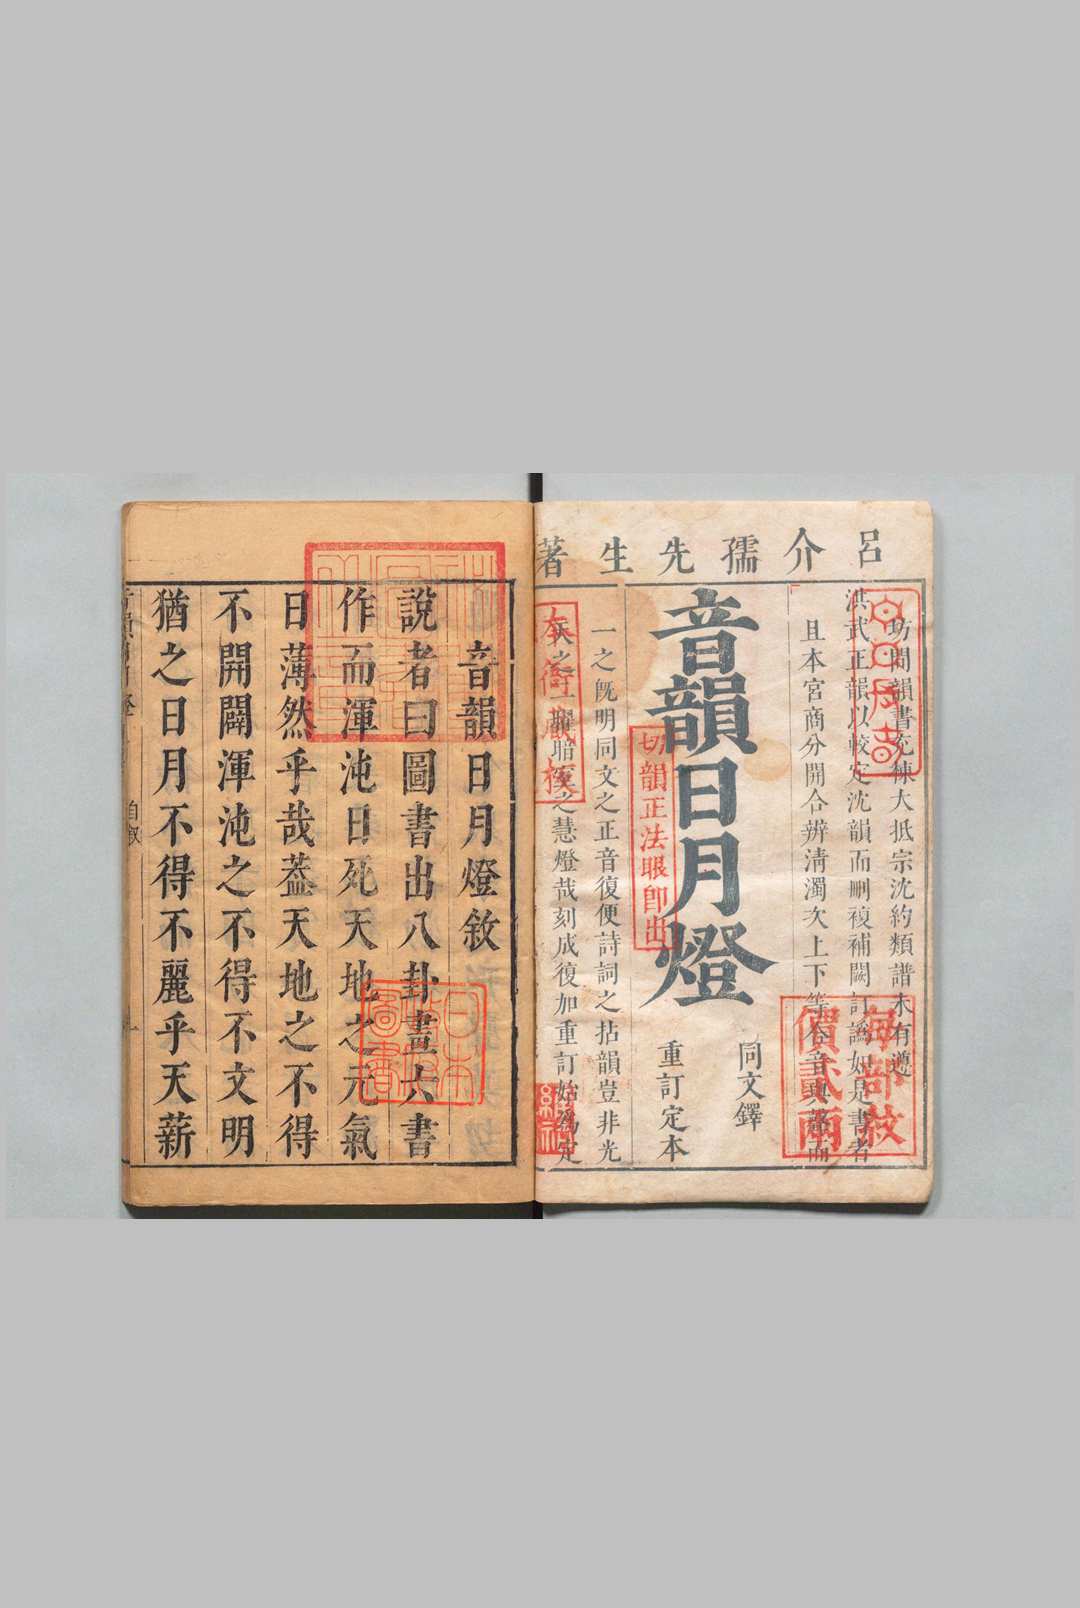 呂介孺先生著
坊間韻書充棟大抵宗沈約類譜未有遵
洪武正韻以較定沈韻而刪複補闕訂譌如是書者
且本宮商分開合辨清濁次上下等
音韻日月燈
同文鐸
重訂定本
一之既明同文之正音復便詩詞之拈韻豈非光
暗室之慧燈哉刻成復加重訂始為定
切韻正法眼即出
每部紋
價貳兩
本衙藏板
音韻日月燈敘
說者曰圖書出八卦畫六書
作而渾沌日死天地之元氣
日薄然乎哉蓋天地之不得
不開闢渾沌之不得不文明
猶之日月不得不麗乎天薪
自敘
一
日本
圖書